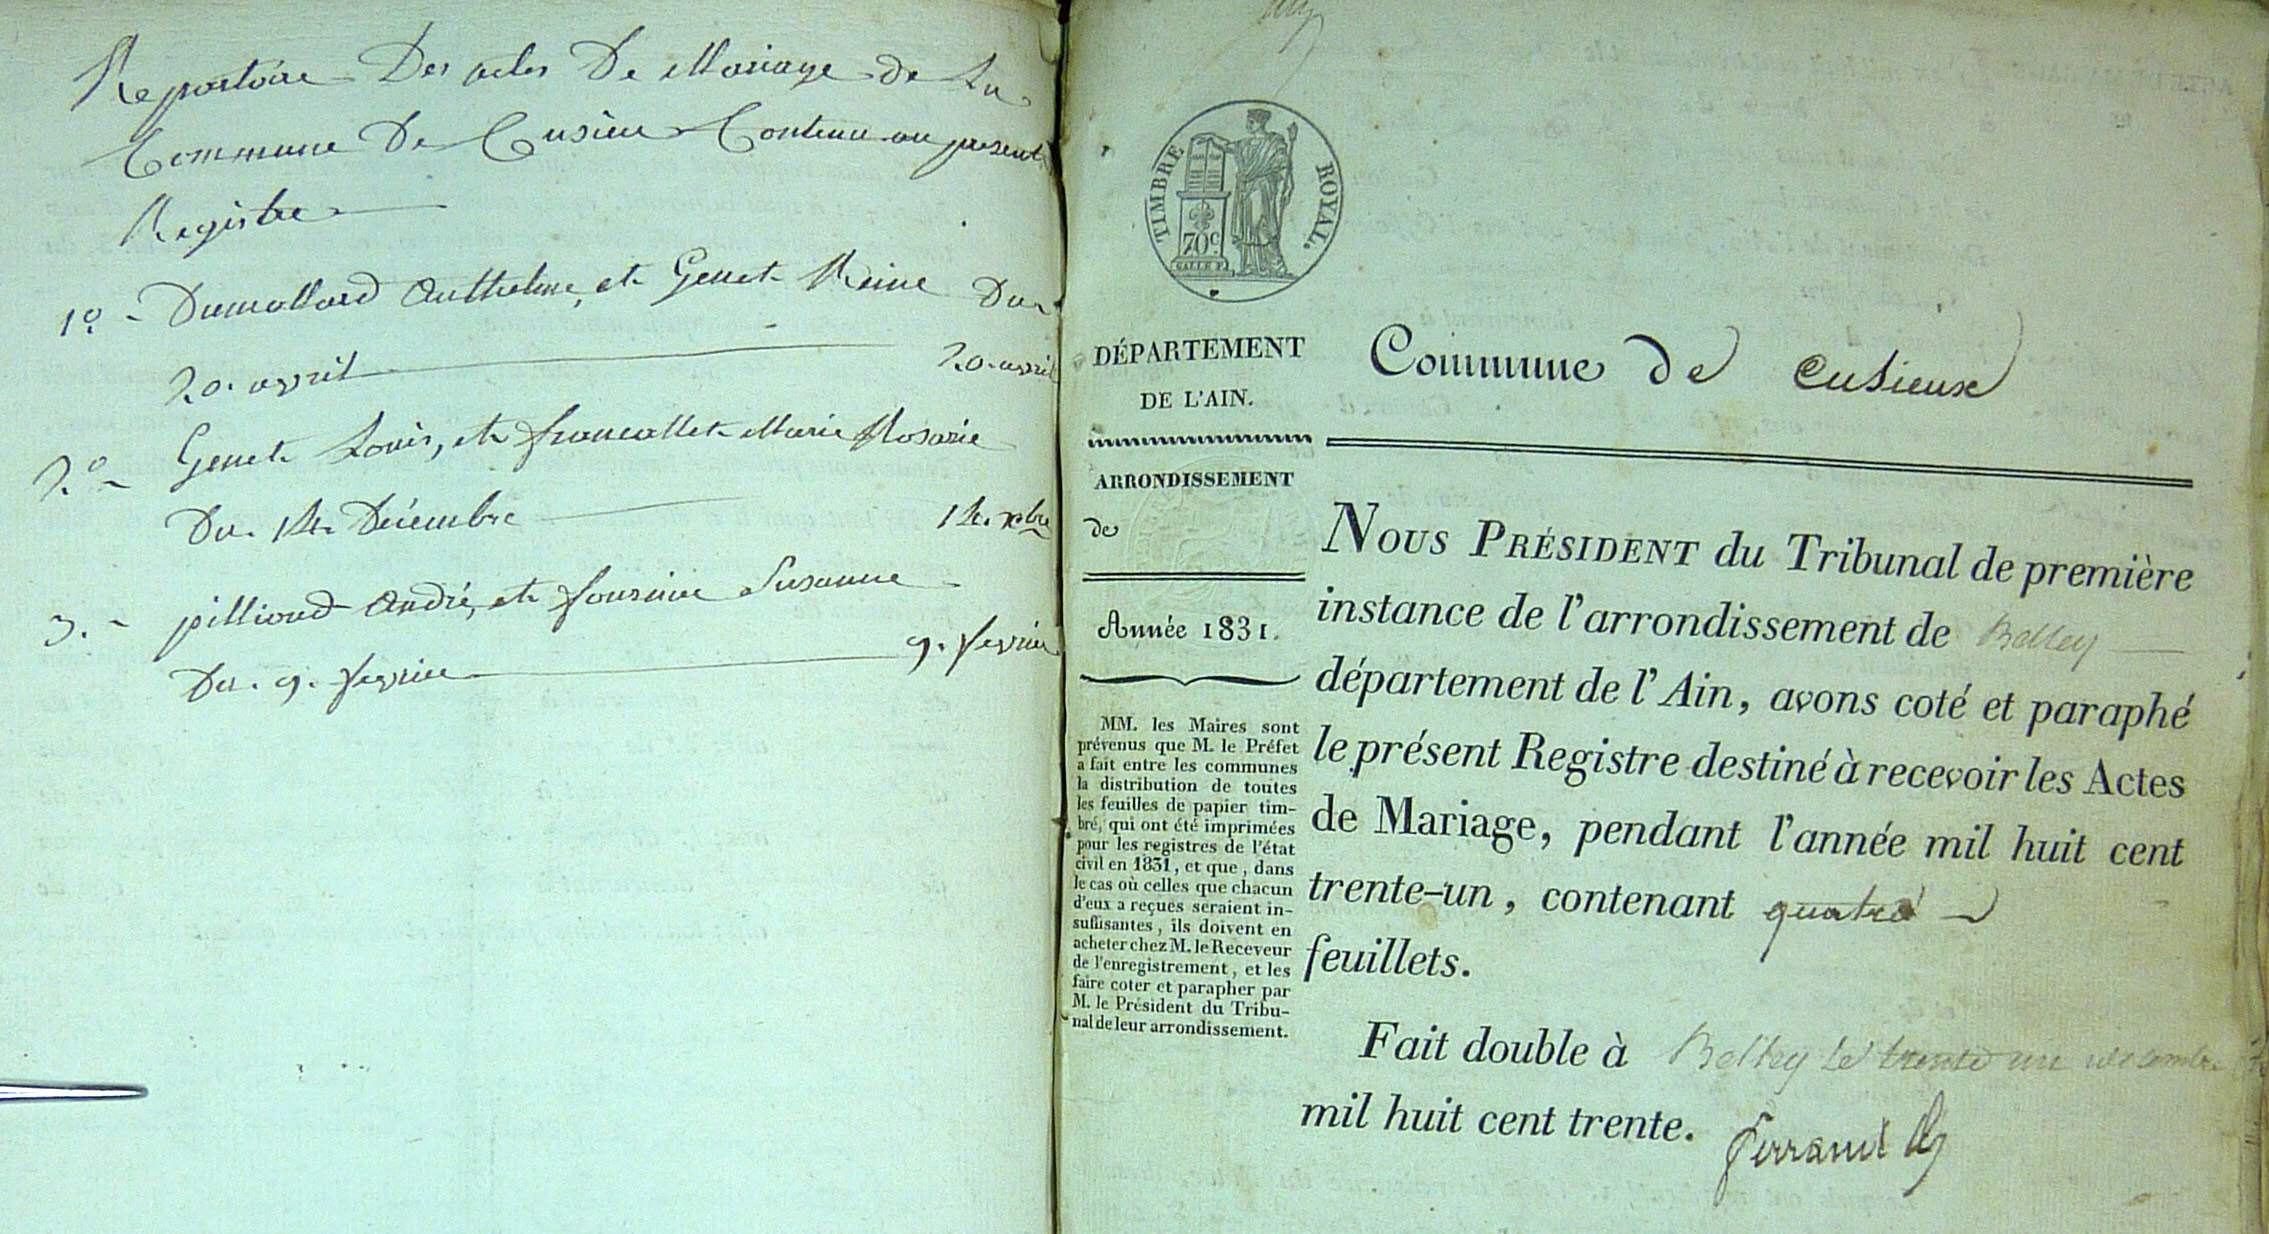 Repertoire Des actes De Mariage de La
Commune De Cusieu Contenu au present
Registre
1º - Dumollard Anthelme, et Genet Reine Du
20. avril 20. avril
2º - Genet Louis, et francallet Marie Rosarie
Du. 14. Décembre 14. xbre
3. - pillioud André, et foursine Susanne
Du. 9. fevrier 9. fevrier
TIMBRE ROYAL.
70 c.
DÉPARTEMENT
DE L'AIN.
ARRONDISSEMENT
de
Année 1831.
MM. les Maires sont
prévenus que M. le Préfet
a fait entre les communes
la distribution de toutes
les feuilles de papier tim-
bré, qui ont été imprimées
pour les registres de l'état
civil en 1831, et que, dans
le cas où celles que chacun
d'eux a reçues seraient in-
suffisantes, ils doivent en
acheter chez M. le Receveur
de l'enregistrement, et les
faire coter et parapher par
M. le Président du Tribu-
nal de leur arrondissement.
Commune de Cusieux
NOUS PRÉSIDENT du Tribunal de première
instance de l'arrondissement de Belley
département de l'Ain, avons coté et paraphé
le présent Registre destiné à recevoir les Actes
de Mariage, pendant l'année mil huit cent
trente-un, contenant quatre
feuillets.
Fait double à Belley le trente un décembre
mil huit cent trente.
Ferrand